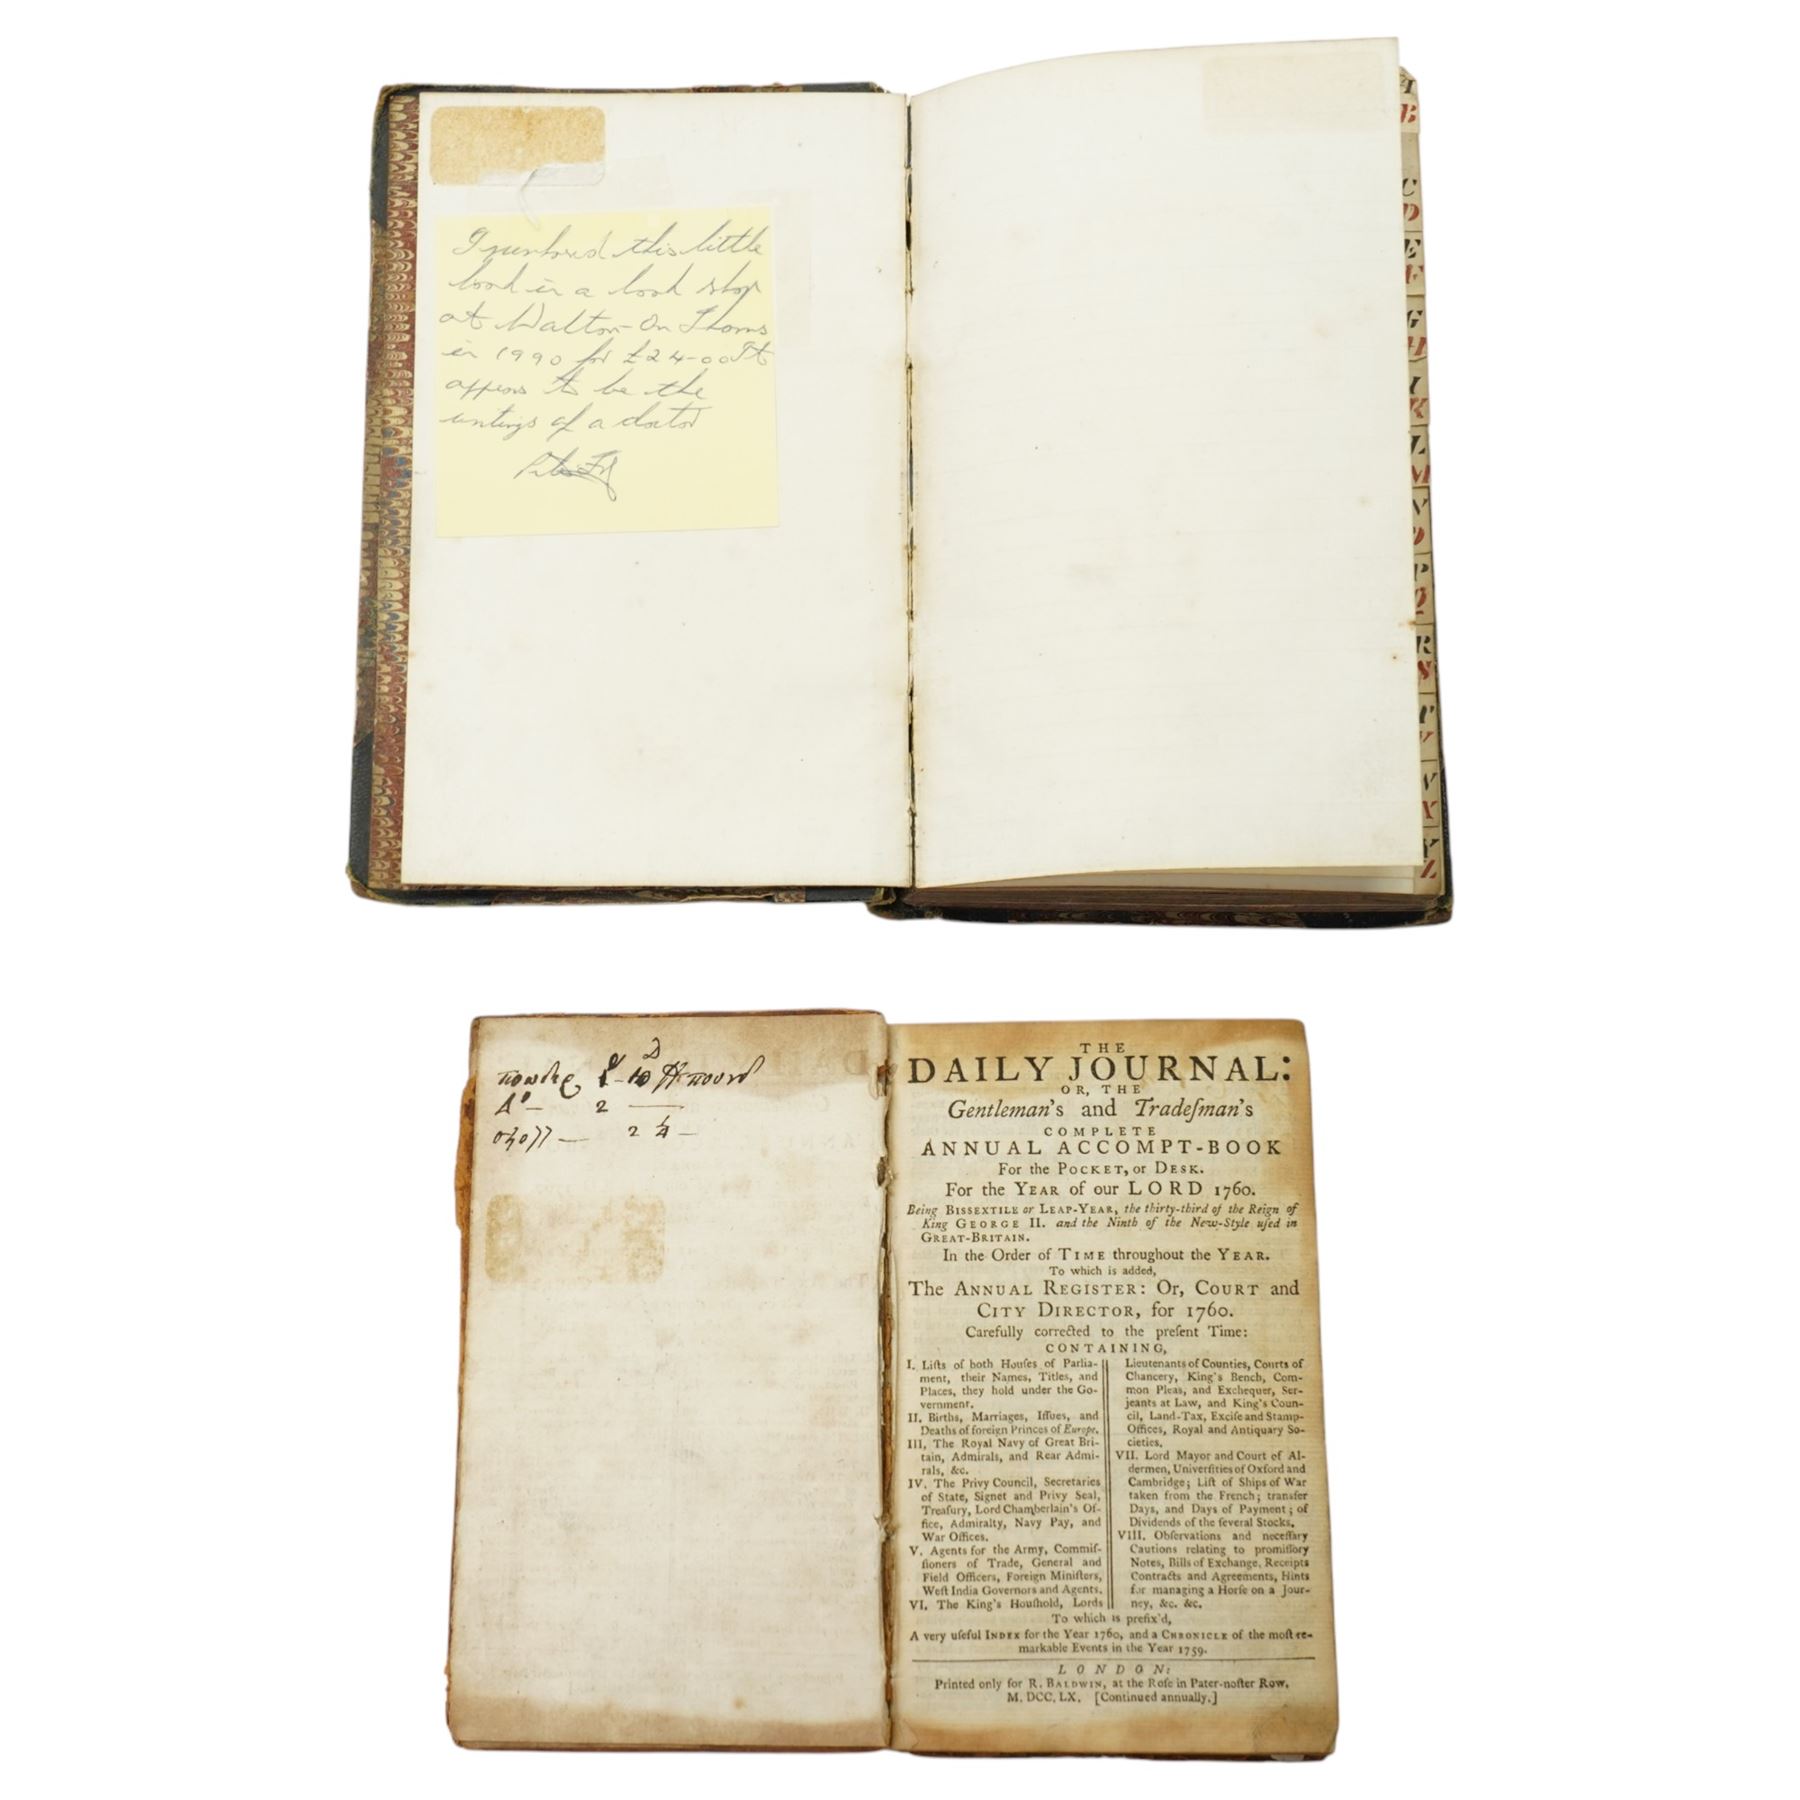 I purchased this little
book in a book shop
at Walton-On Thams
in 1990 for £24-00 It
appears to be the
writings of a doctor
A
B
C
D
E
F
G
H
I
K
L
M
N
O
P
Q
R
S
T
V
W
X
Y
Z
2
2 1/4 —
THE
DAILY JOURNAL:
OR, THE
Gentleman's and Tradeſman's
COMPLETE
ANNUAL ACCOMPT-BOOK
For the POCKET, or DESK.
For the YEAR of our LORD 1760.
Being BISSEXTILE or LEAP-YEAR, the thirty-third of the Reign of
King GEORGE II. and the Ninth of the New-Style uſed in
GREAT-BRITAIN.
In the Order of TIME throughout the YEAR.
To which is added,
The ANNUAL REGISTER: Or, COURT and
CITY DIRECTOR, for 1760.
Carefully corrected to the preſent Time:
CONTAINING,
I. Liſts of both Houſes of Parlia-
ment, their Names, Titles, and
Places, they hold under the Go-
vernment.
II. Births, Marriages, Iſſues, and
Deaths of foreign Princes of Europe.
III. The Royal Navy of Great Bri-
tain, Admirals, and Rear Admi-
rals, &c.
IV. The Privy Council, Secretaries
of State, Signet and Privy Seal,
Treaſury, Lord Chamberlain's Of-
fice, Admiralty, Navy Pay, and
War Offices.
V. Agents for the Army, Commiſ-
ſioners of Trade, General and
Field Officers, Foreign Miniſters,
Weſt India Governors and Agents.
VI. The King's Houſhold, Lords
Lieutenants of Counties, Courts of
Chancery, King's Bench, Com-
mon Pleas, and Exchequer, Ser-
jeants at Law, and King's Coun-
cil, Land-Tax, Exciſe and Stamp-
Offices, Royal and Antiquary So-
cieties.
VII. Lord Mayor and Court of Al-
dermen, Univerſities of Oxford and
Cambridge; Liſt of Ships of War
taken from the French; transfer
Days, and Days of Payment; of
Dividends of the ſeveral Stocks.
VIII. Obſervations and neceſſary
Cautions relating to promiſſory
Notes, Bills of Exchange, Receipts
Contracts and Agreements, Hints
for managing a Horſe on a Jour-
ney, &c. &c.
To which is prefix'd,
A very uſeful INDEX for the Year 1760, and a CHRONICLE of the moſt re-
markable Events in the Year 1759.
LONDON:
Printed only for R. BALDWIN, at the Roſe in Pater-noſter Row,
M. DCC. LX. [Continued annually.]